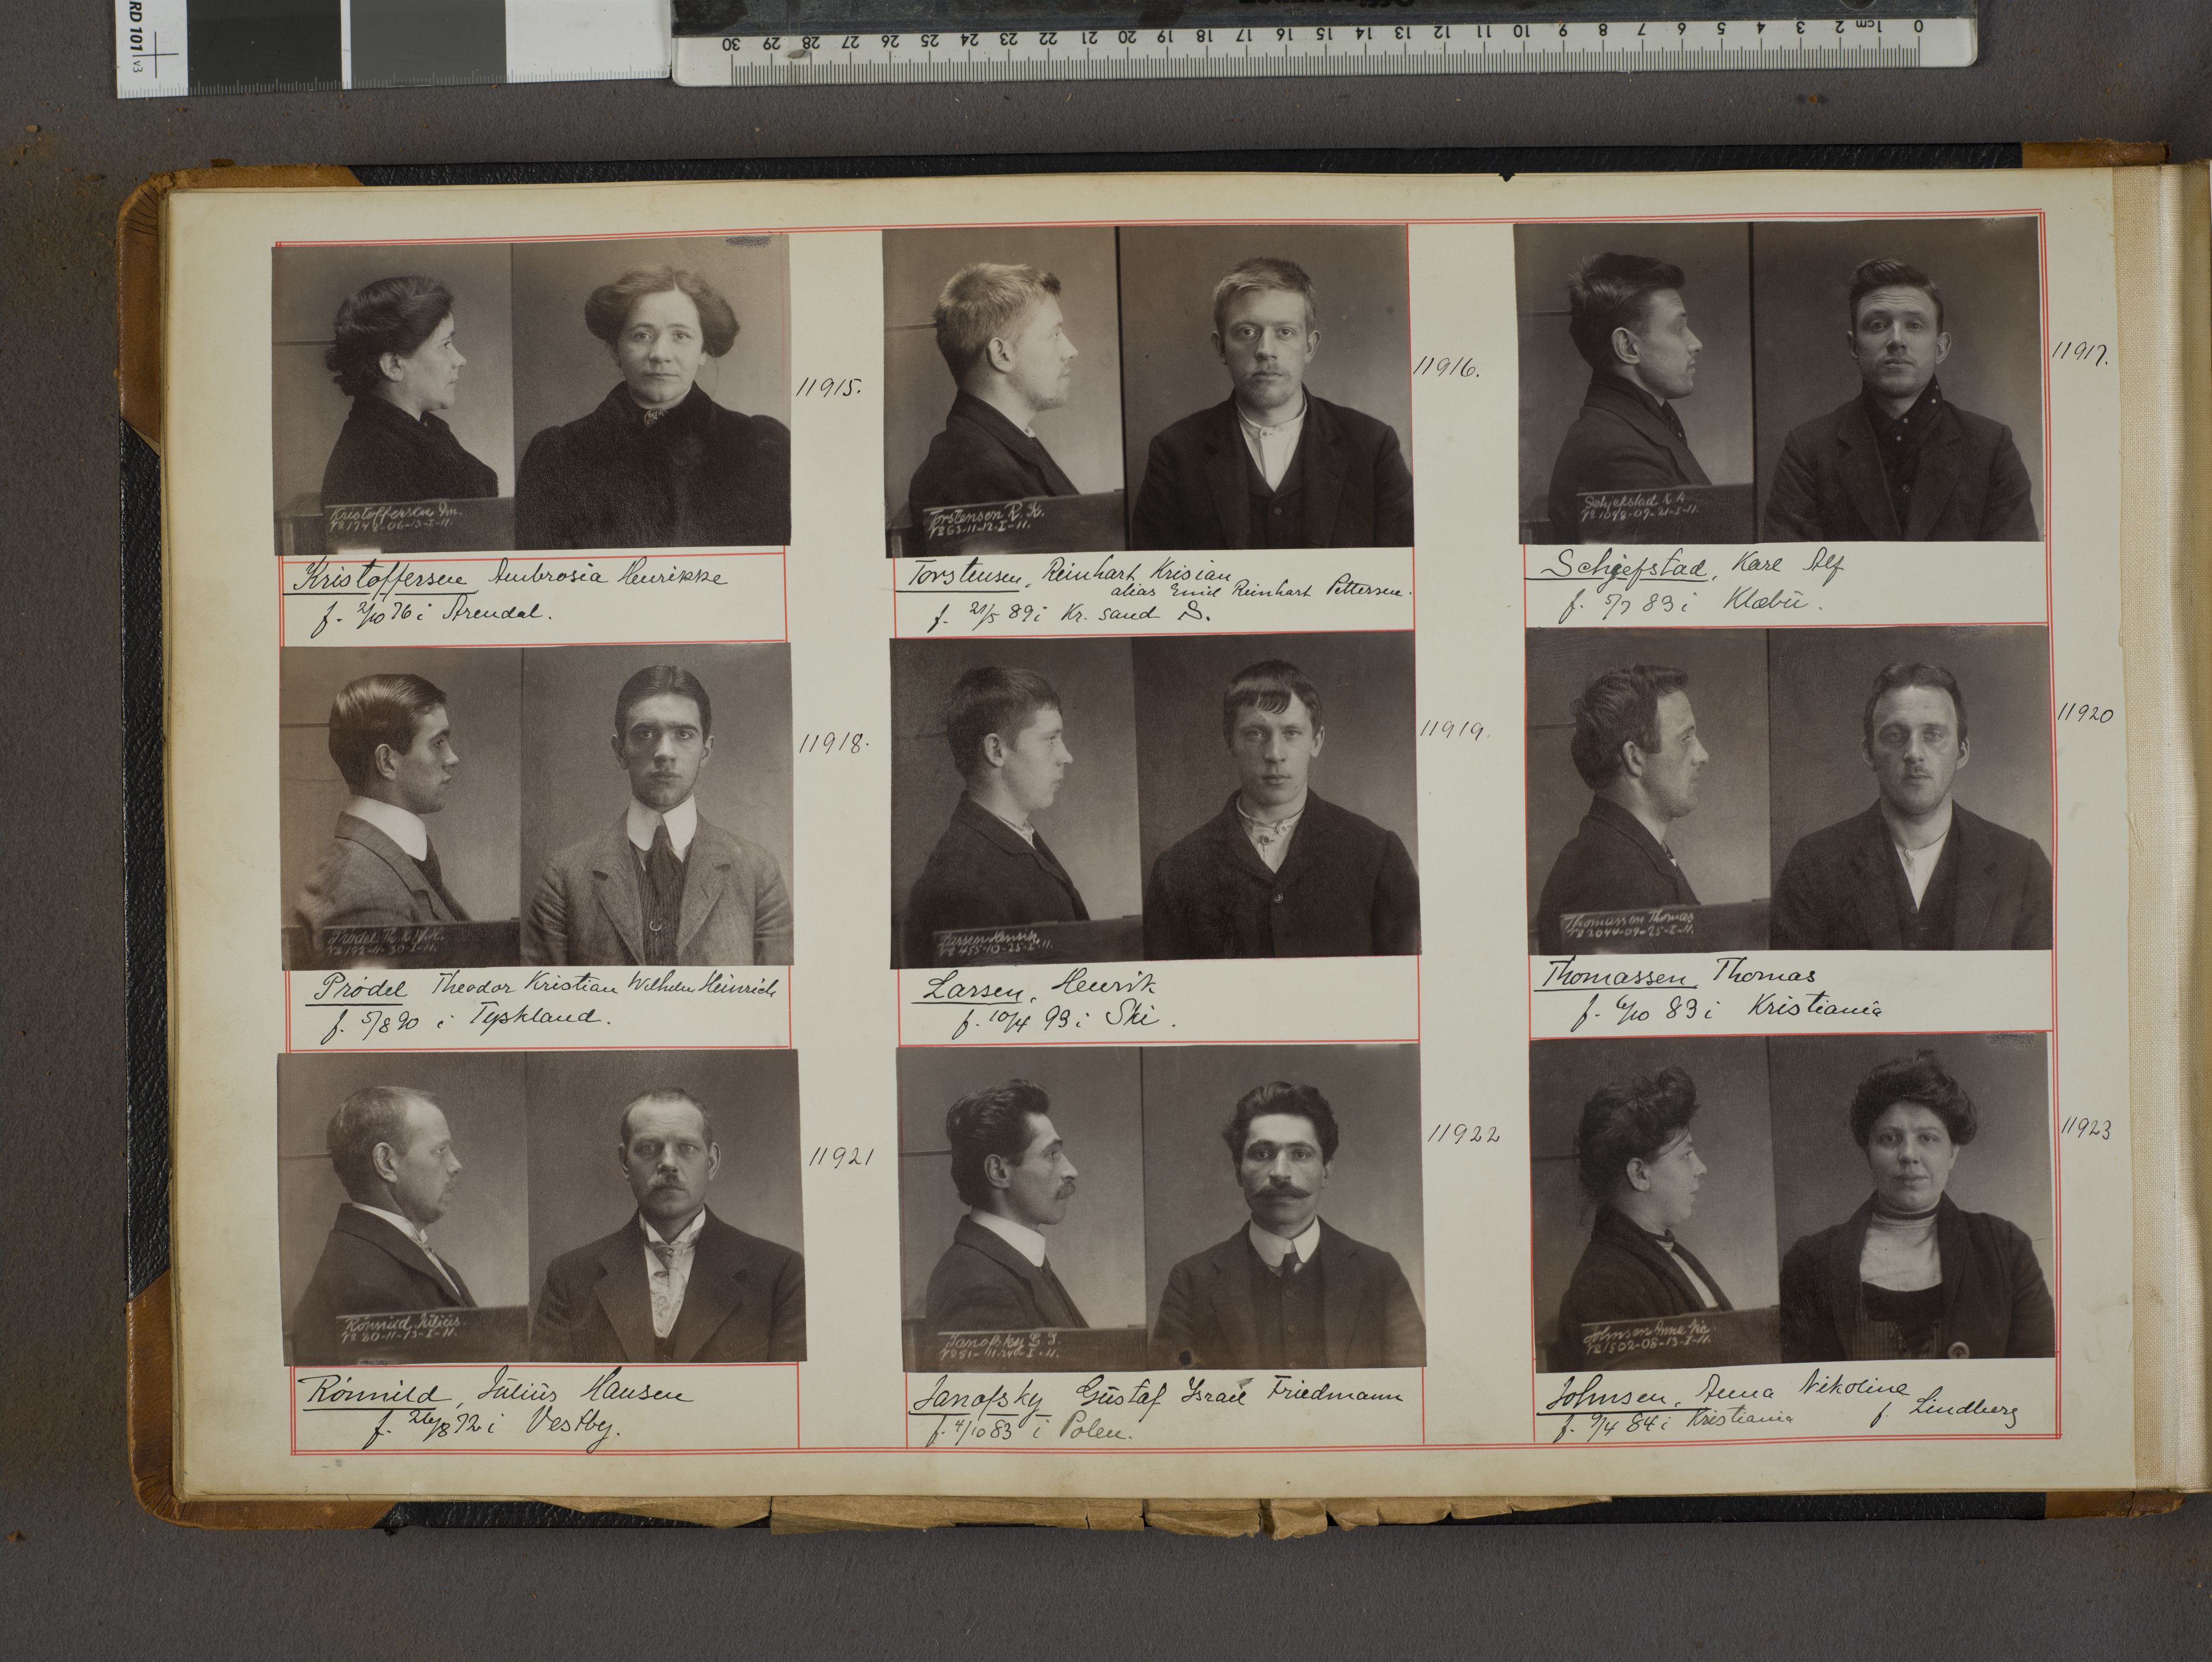 RD 101 v3
0 1cm 2 3 4 5 6 7 8 9 10 11 12 13 14 15 16 17 18 19 20 21 22 23 24 25 26 27 28 29 30
Kristoffersen Am.
№ 1748-06-13-I-11.
11915.
Kristoffersen Ambrosia Henrikke
f. 2/10 76 i Arendal.
Torstensen R. K.
№ 63-11-12-I-11.
11916.
Torstensen, Reinhart Krisian
alias Emil Reinhart Pettersen.
f. 21/5 89 i Kr. sand S.
Schjefstad K. A.
№ 1048-09-21-I-11.
11917.
Schjefstad, Karl Alf
f. 5/7 83 i Klæbü.
Prödel Th. K. W. H.
№ 192-11-30-I-11.
11918.
Prödel Theodor Kristian Wilhelm Heinrich
f. 5/8 90 i Tyskland.
Larsen Henrik
№ 455-10-25-I-11.
11919.
Larsen, Henrik
f. 10/4 93 i Ski.
Thomassen Thomas
№ 2044-09-25-I-11.
11920
Thomassen Thomas
f. 6/10 83 i Kristiania
Rönnild Jülius.
№ 80-11-13-I-11.
11921
Rönnild, Jüliüs Hansen
f. 26/8 72 i Vestby.
Janofsky G. I.
№ 51-11-24-I-11.
11922
Janofsky Güstaf Israel Friedmann
f. 4/10 83 i Polen.
Johnsen Anna Nic.
№ 1502-08-13-I-11.
11923
Johnsen, Anna Nikoline
f. Lindberg
f. 9/4 84 i Kristiania